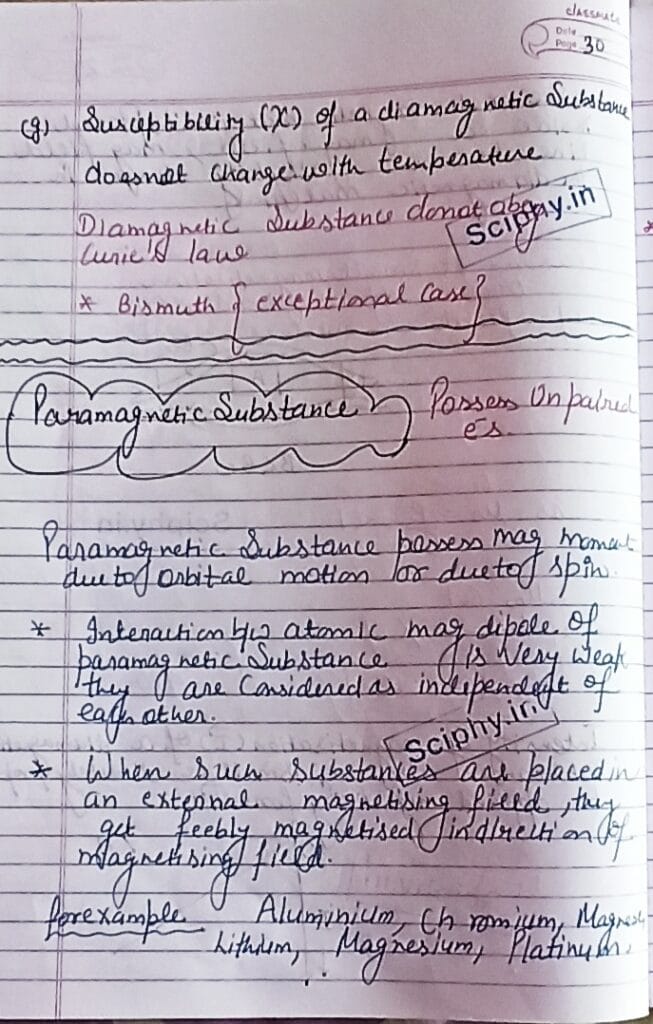 classmate
Date
Page 30
(g) Susceptibility (X) of a diamagnetic Substance
doesnot change with temperature
Diamagnetic Substance donot abey
Curie's law
Sciphy.in
* Bismuth { exceptional case}
Paramagnetic Substance
Possess Unpaired
e's.
Paramagnetic Substance possess mag moment
due to orbital motion or due to spin.
* Interaction b/w atomic mag dipole of
paramagnetic Substance is Very Weak
they are Considered as independent of
each other.
Sciphy.in
* When such substances are placed in
an external magnetising field, they
get feebly magnetised in direction of
magnetising field.
for example Aluminium, Chromium,
Lithium, Magnesium, Platinum.